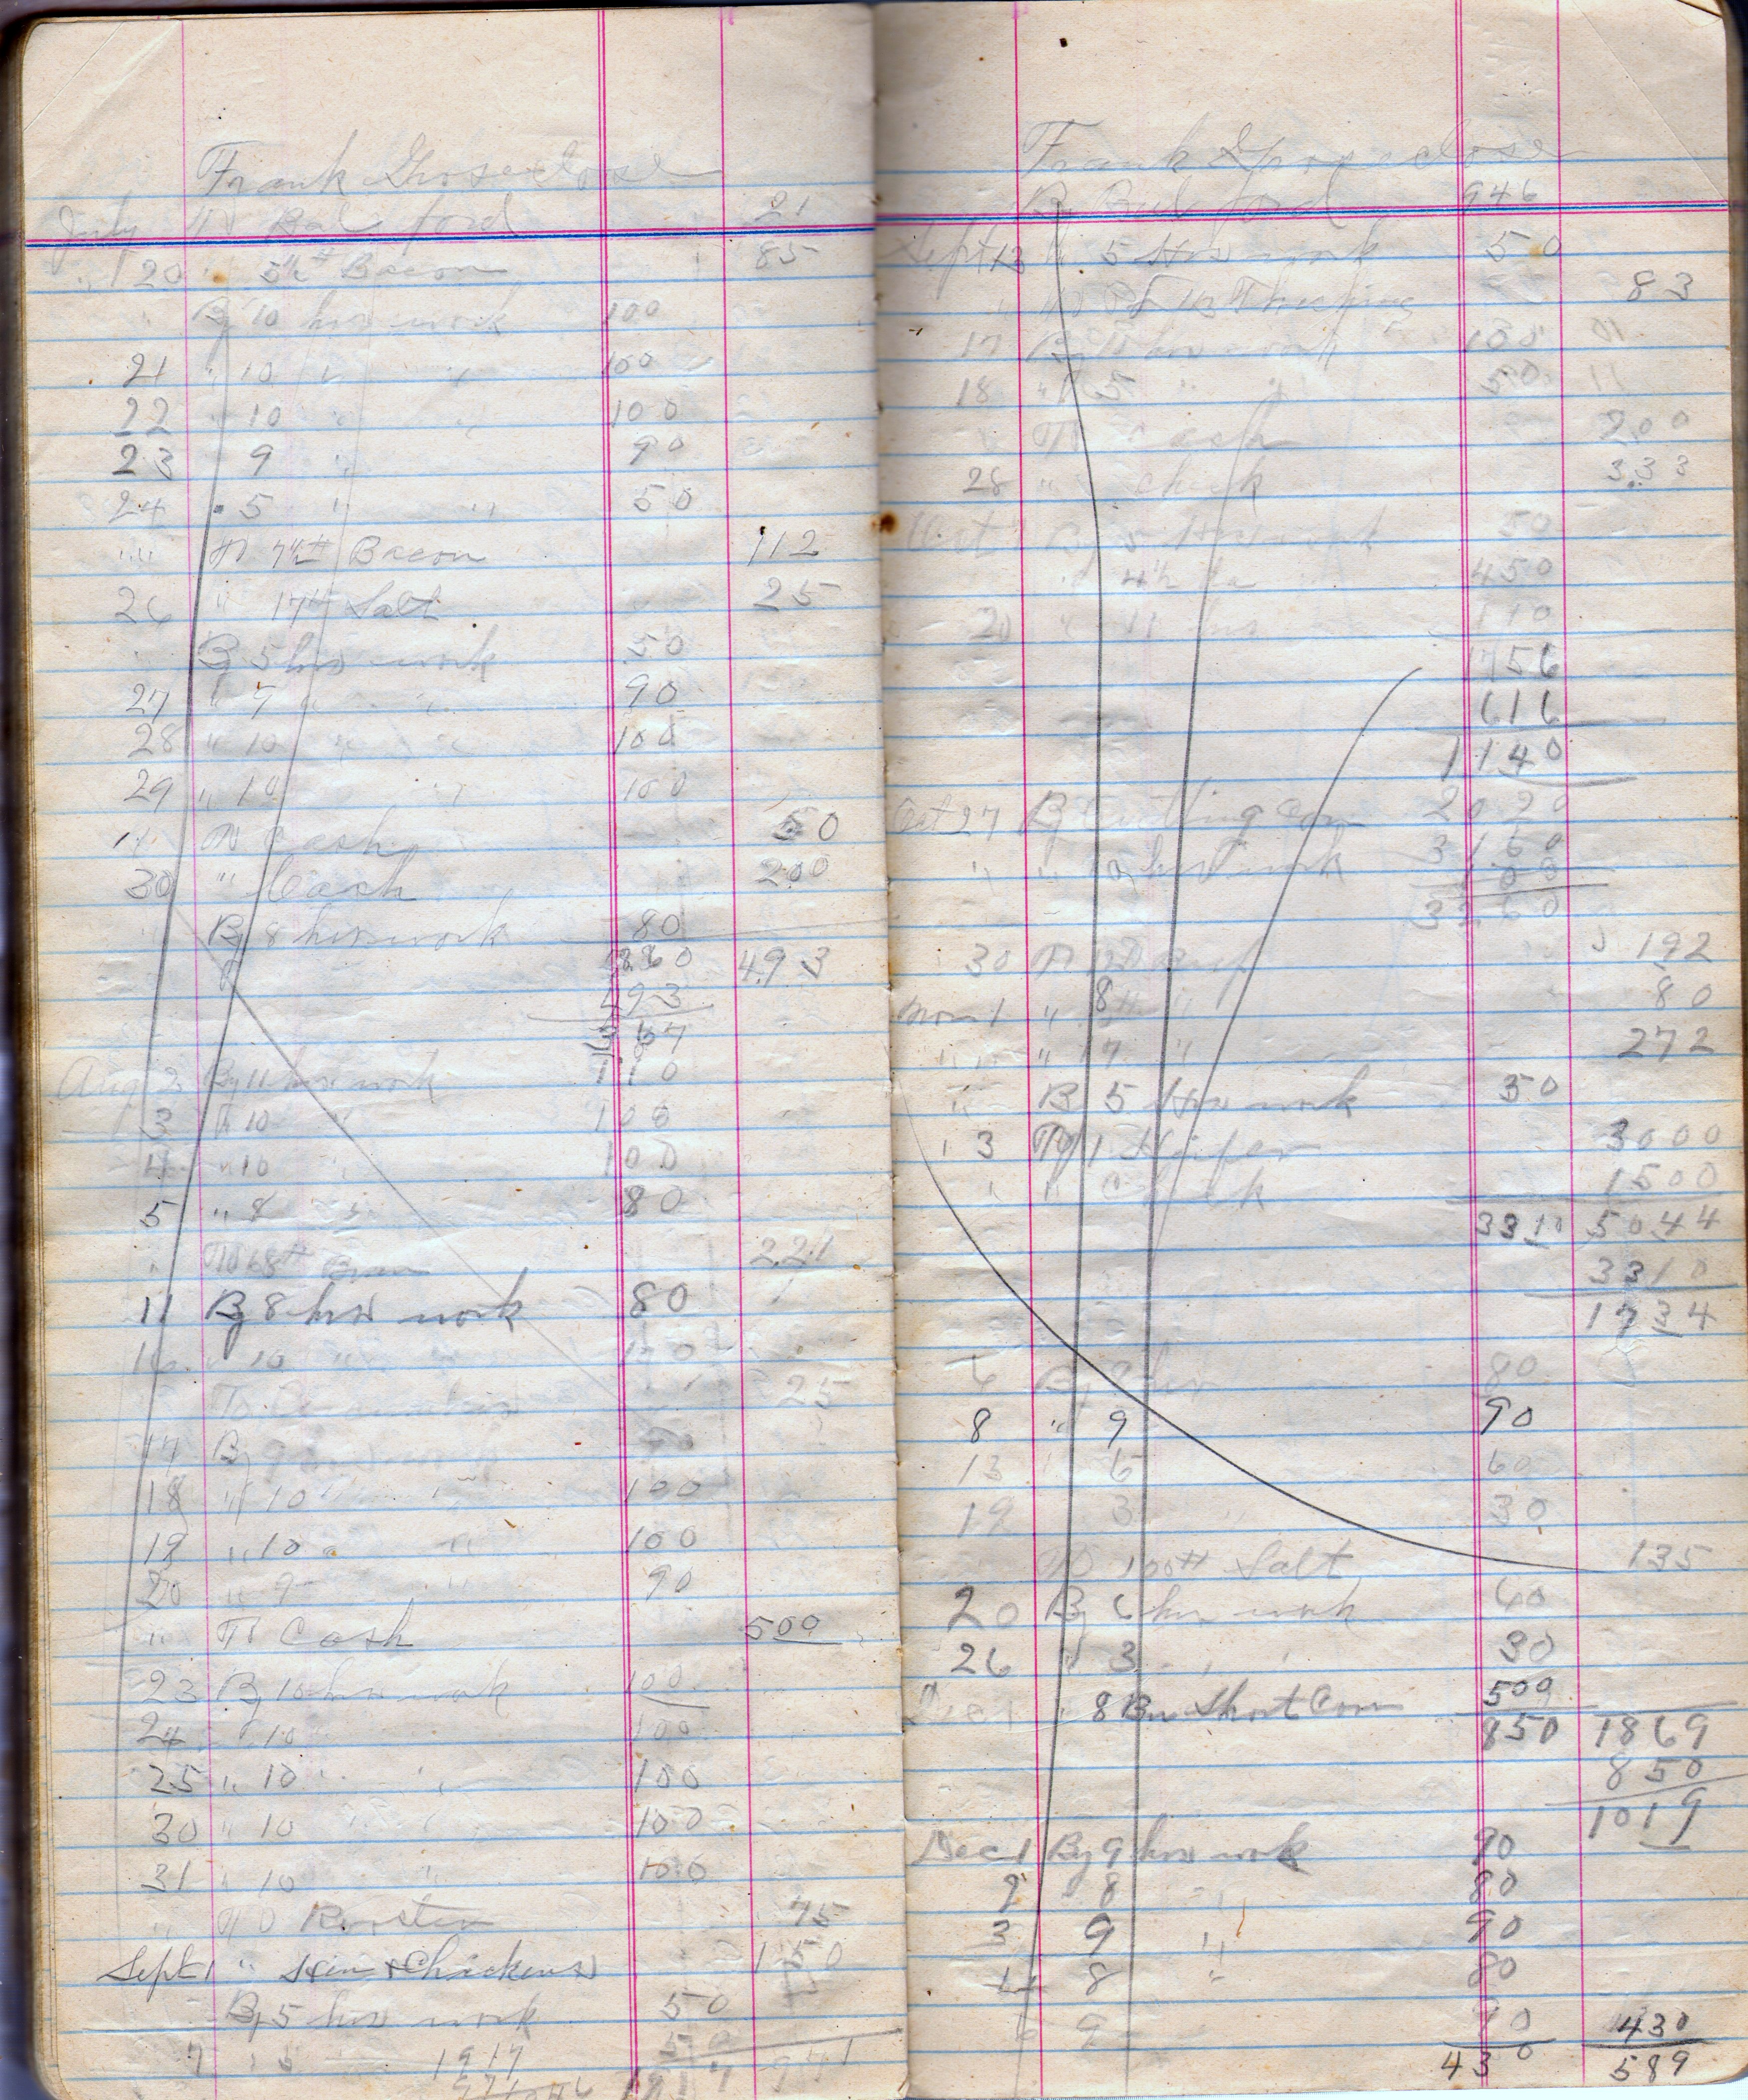 Frank Groseclose
July To Bal ford 21
" 20 " 5½# Bacon 85
" By 10 hrs work 100
21 " 10 " " 100
22 " 10 " " 100
23 9 " 90
24 " 5 " " 50
" " To 7½# Bacon 112
26 " 17# Salt 25
By 5 hrs work 50
27 " 9 " " 90
28 " 10 " " 100
29 " 10 " 100
" To Cash 50
30 " Cash 200
By 8 hrs work 80
860 493
493
367
Aug 2 By 11 hrs work 110
3 " 10 " 100
4 " 10 " 100
5 " 8 " 80
" To 68# Bran 221
11 By 8 hrs work 80
16 " 10 " " 100
To 25
17 By 9 90
18 " 10 " " 100
19 " 10 " " 100
20 " 9 " 90
" To Cash 500
23 By 10 hrs work 100
24 " 10 100
25 " 10 " " 100
30 " 10 100
31 " 10 " 100
" To Rooster 75
Sept 1 " Hen & Chickens 150
By 5 hrs work 50
7 " 5 50
1917 971
Frank Groseclose
By Bal ford 946
Sept 13 " 5 Hrs work 50
" To Threshing 83
17 By 10 hrs work 100
18 " 5 " " 50
To Cash 200
28 " check 333
Oct By 5 Hrs work 50
" 4½ da 450
20 " 11 hrs 110
1756
616
1140
Oct 27 By Cutting Corn 2020
3160
" " hrs work 100
3260
30 To Beef 192
Nov 1 " 8# " 80
" " " 7 " 272
" By 5 Hrs work 50
" 3 To 1 Heifer 3000
" " Check 1500
3310 5044
3310
1734
6 By 8 hrs 80
8 " 9 90
13 " 6 60
19 3 " 30
To 100# Salt 135
20 By 6 hrs work 60
26 " 3 " " 30
Dec 1 " 8 Bu Short Corn 500
850 1869
850
1019
Dec 1 By 9 hrs work 90
2 8 " 80
3 9 " 90
4 8 " 80
6 9 90 430
430 589